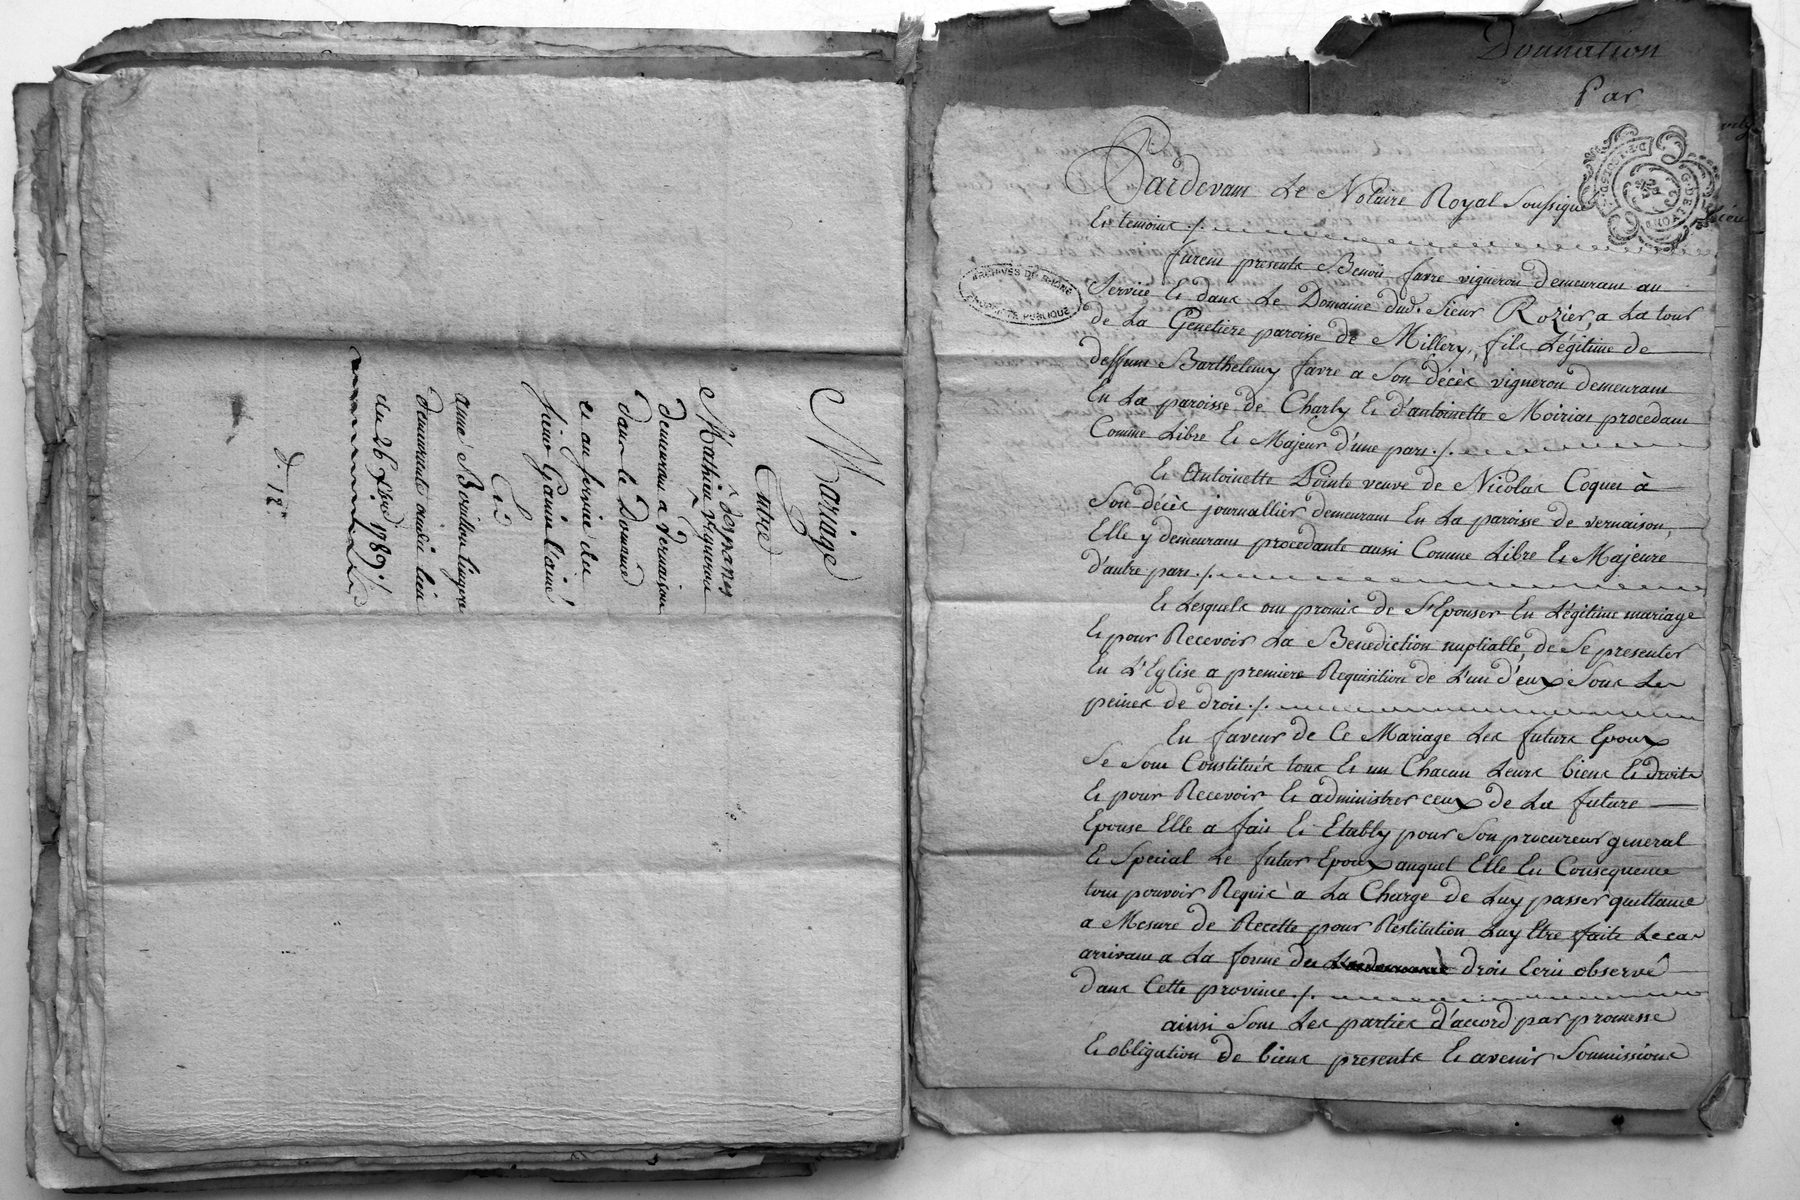 Mariage
Entre
Mathieu desgranges vigneron
demeurant a Vernaison
dans le Domaine
et au service du
sieur Gonin l'ainé
Et
anne Bovillon lingere
demeurante audit lieu
du 26 9bre 1789 ./.
d. 12
Donnation
Par
Pardevant Le Notaire Royal Soussigné
Et temoins ./.
furent presents Benoit favre vigneron demeurant au
Service Et dans Le Domaine dud. Sieur Rozier, a La tour
de La Genetiere paroisse de Millery, fils Légitime de
deffunt Barthelemy favre a Son décès vigneron demeurant
En La paroisse de Charly Et d'antoinette Moirias procedant
Comme Libre Et Majeur d'une part ./.
Et Antoinette Pointe veuve de Nicolas Coquet à
Son décès journallier demeurant En La paroisse de vernaison,
Elle y demeurant procedante aussi Comme Libre Et Majeure
d'autre part ./.
Et Lesquels ont promis de S'Epouser En Légitime mariage
Et pour Recevoir La Benediction nuptialle, de Se presenter
En L'Eglise a premiere Requisition de L'un d'eux Sous Les
peines de droit ./.
En faveur de Ce Mariage Les futurs Epoux
Se Sont Constitués tous Et un Chacun Leurs biens Et droits
Et pour Recevoir Et administrer ceux de La future
Epouse Elle a fait Et Etably pour Son procureur general
Et Special Le futur Epoux auquel Elle En Consequence
tout pouvoir Requis à La Charge de Luy passer quittance
a Mesure de Recette pour Restitution Luy Etre faite Le cas
arrivant a La forme du droit Ecrit observé
dans Cette province ./.
ainsi Sont Les parties d'accord par promesse
Et obligation de biens presents Et avenir Soumissions
ARCHIVES DU RHÔNE
PROPRIÉTÉ PUBLIQUE
G. DE LYON